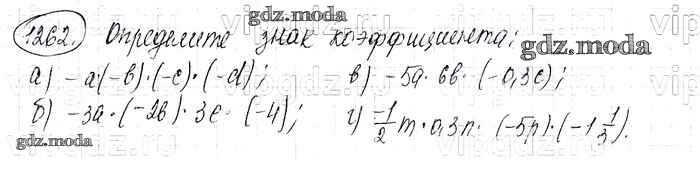 gdz.moda
1262. Определите знак коэффициента:
gdz.moda
а) -a·(-b)·(-c)·(-d); в) -5a·6b·(-0,3c);
б) -3a·(-2b)·3c·(-4); г) -1/2 m·0,3n·(-5p)·(-1 1/3).
gdz.moda